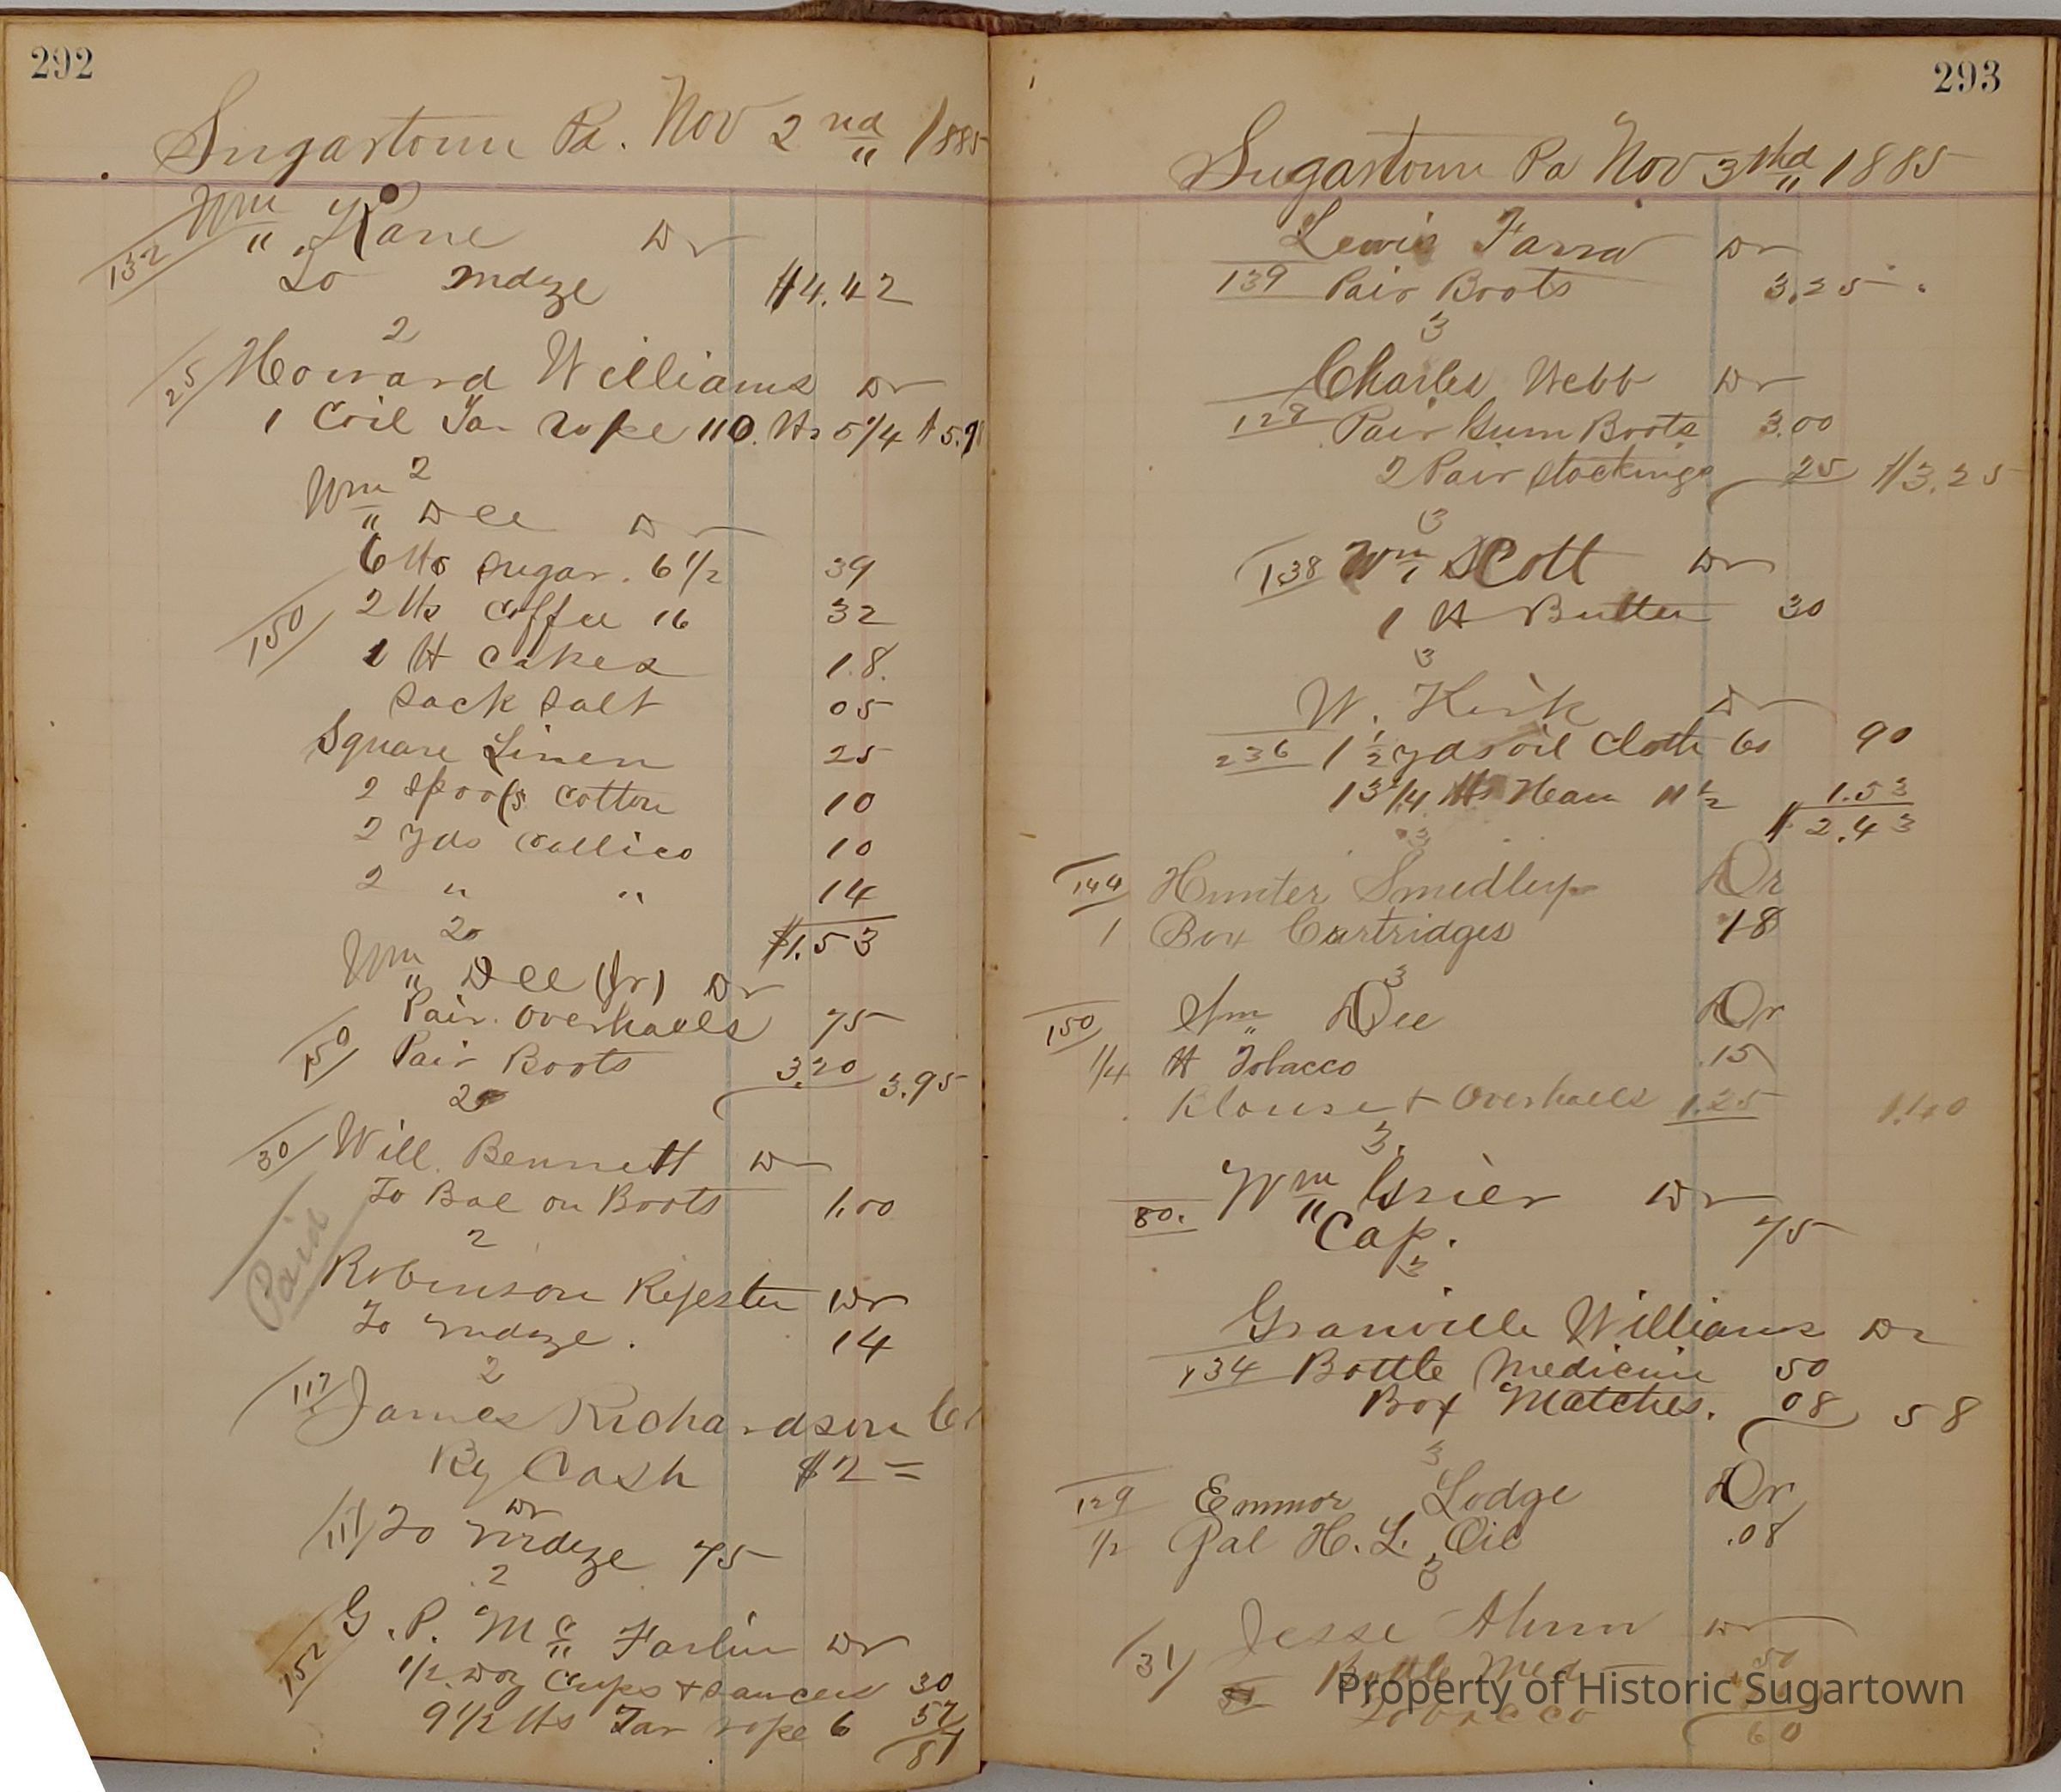 292
Sugartown Pa. Nov 2nd 1885
Wm Kane Dr
132
To Mdze $4.42
2
25 Howard Williams Dr
1 Coil Tar rope 110 lbs 5 1/4
2
Wm Dee Dr
6 lbs Sugar. 6 1/2 39
150 2 lbs Coffee 16 32
1 lb Cakes 18.
Sack Salt 05
Square Linen 25
2 Spools Cotton 10
2 yds Callico 10
2 " " 14
$1.53
2
Wm Dee (Jr) Dr
Pair Overhaels 75
150 Pair Boots 3.20 3.95
2
30 Will. Bennett Dr
To Bal on Boots 1.00
Paid
2
Robinson Rejester Dr
To Mdze. 14
2
117 James Richardson Cr
By Cash $2 =
Dr
117 To Mdze 75
2
G. P. Mc Farlin Dr
152 1/2 Doz Cups + Saucers 30
9 1/2 lbs Tar rope 6 57
87
293
Sugartown Pa Nov 3rd 1885
Lewis Farra Dr
139 Pair Boots 3.25
3
Charles Webb Dr
128 Pair Gum Boots 3.00
2 Pair Stockings 25 $3.25
3
138 Wm Scott Dr
1 lb Butter 30
3
W. Kirk Dr
236 1 1/2 yds oil Cloth 60 90
13 1/4 lbs Ham 11 1/2 1.53
$2.43
3
144 Hunter Smedley Dr
1 Box Cartridges 18
3
150 Wm Dee Dr
1/4 lb Tobacco .15
Blouse + Overhaels 1.25 1.40
3.
80. Wm Grier Dr
Cap. 75
3
Granville Williams Dr
134 Bottle Medicine 50
Box Matches. 08 58
3
129 Emmor Lodge Dr
1/2 Gal H. L. Oil .08
3
31 Jesse Ahum Dr
Bottle Med 50
Tobacco
60
Property of Historic Sugartown